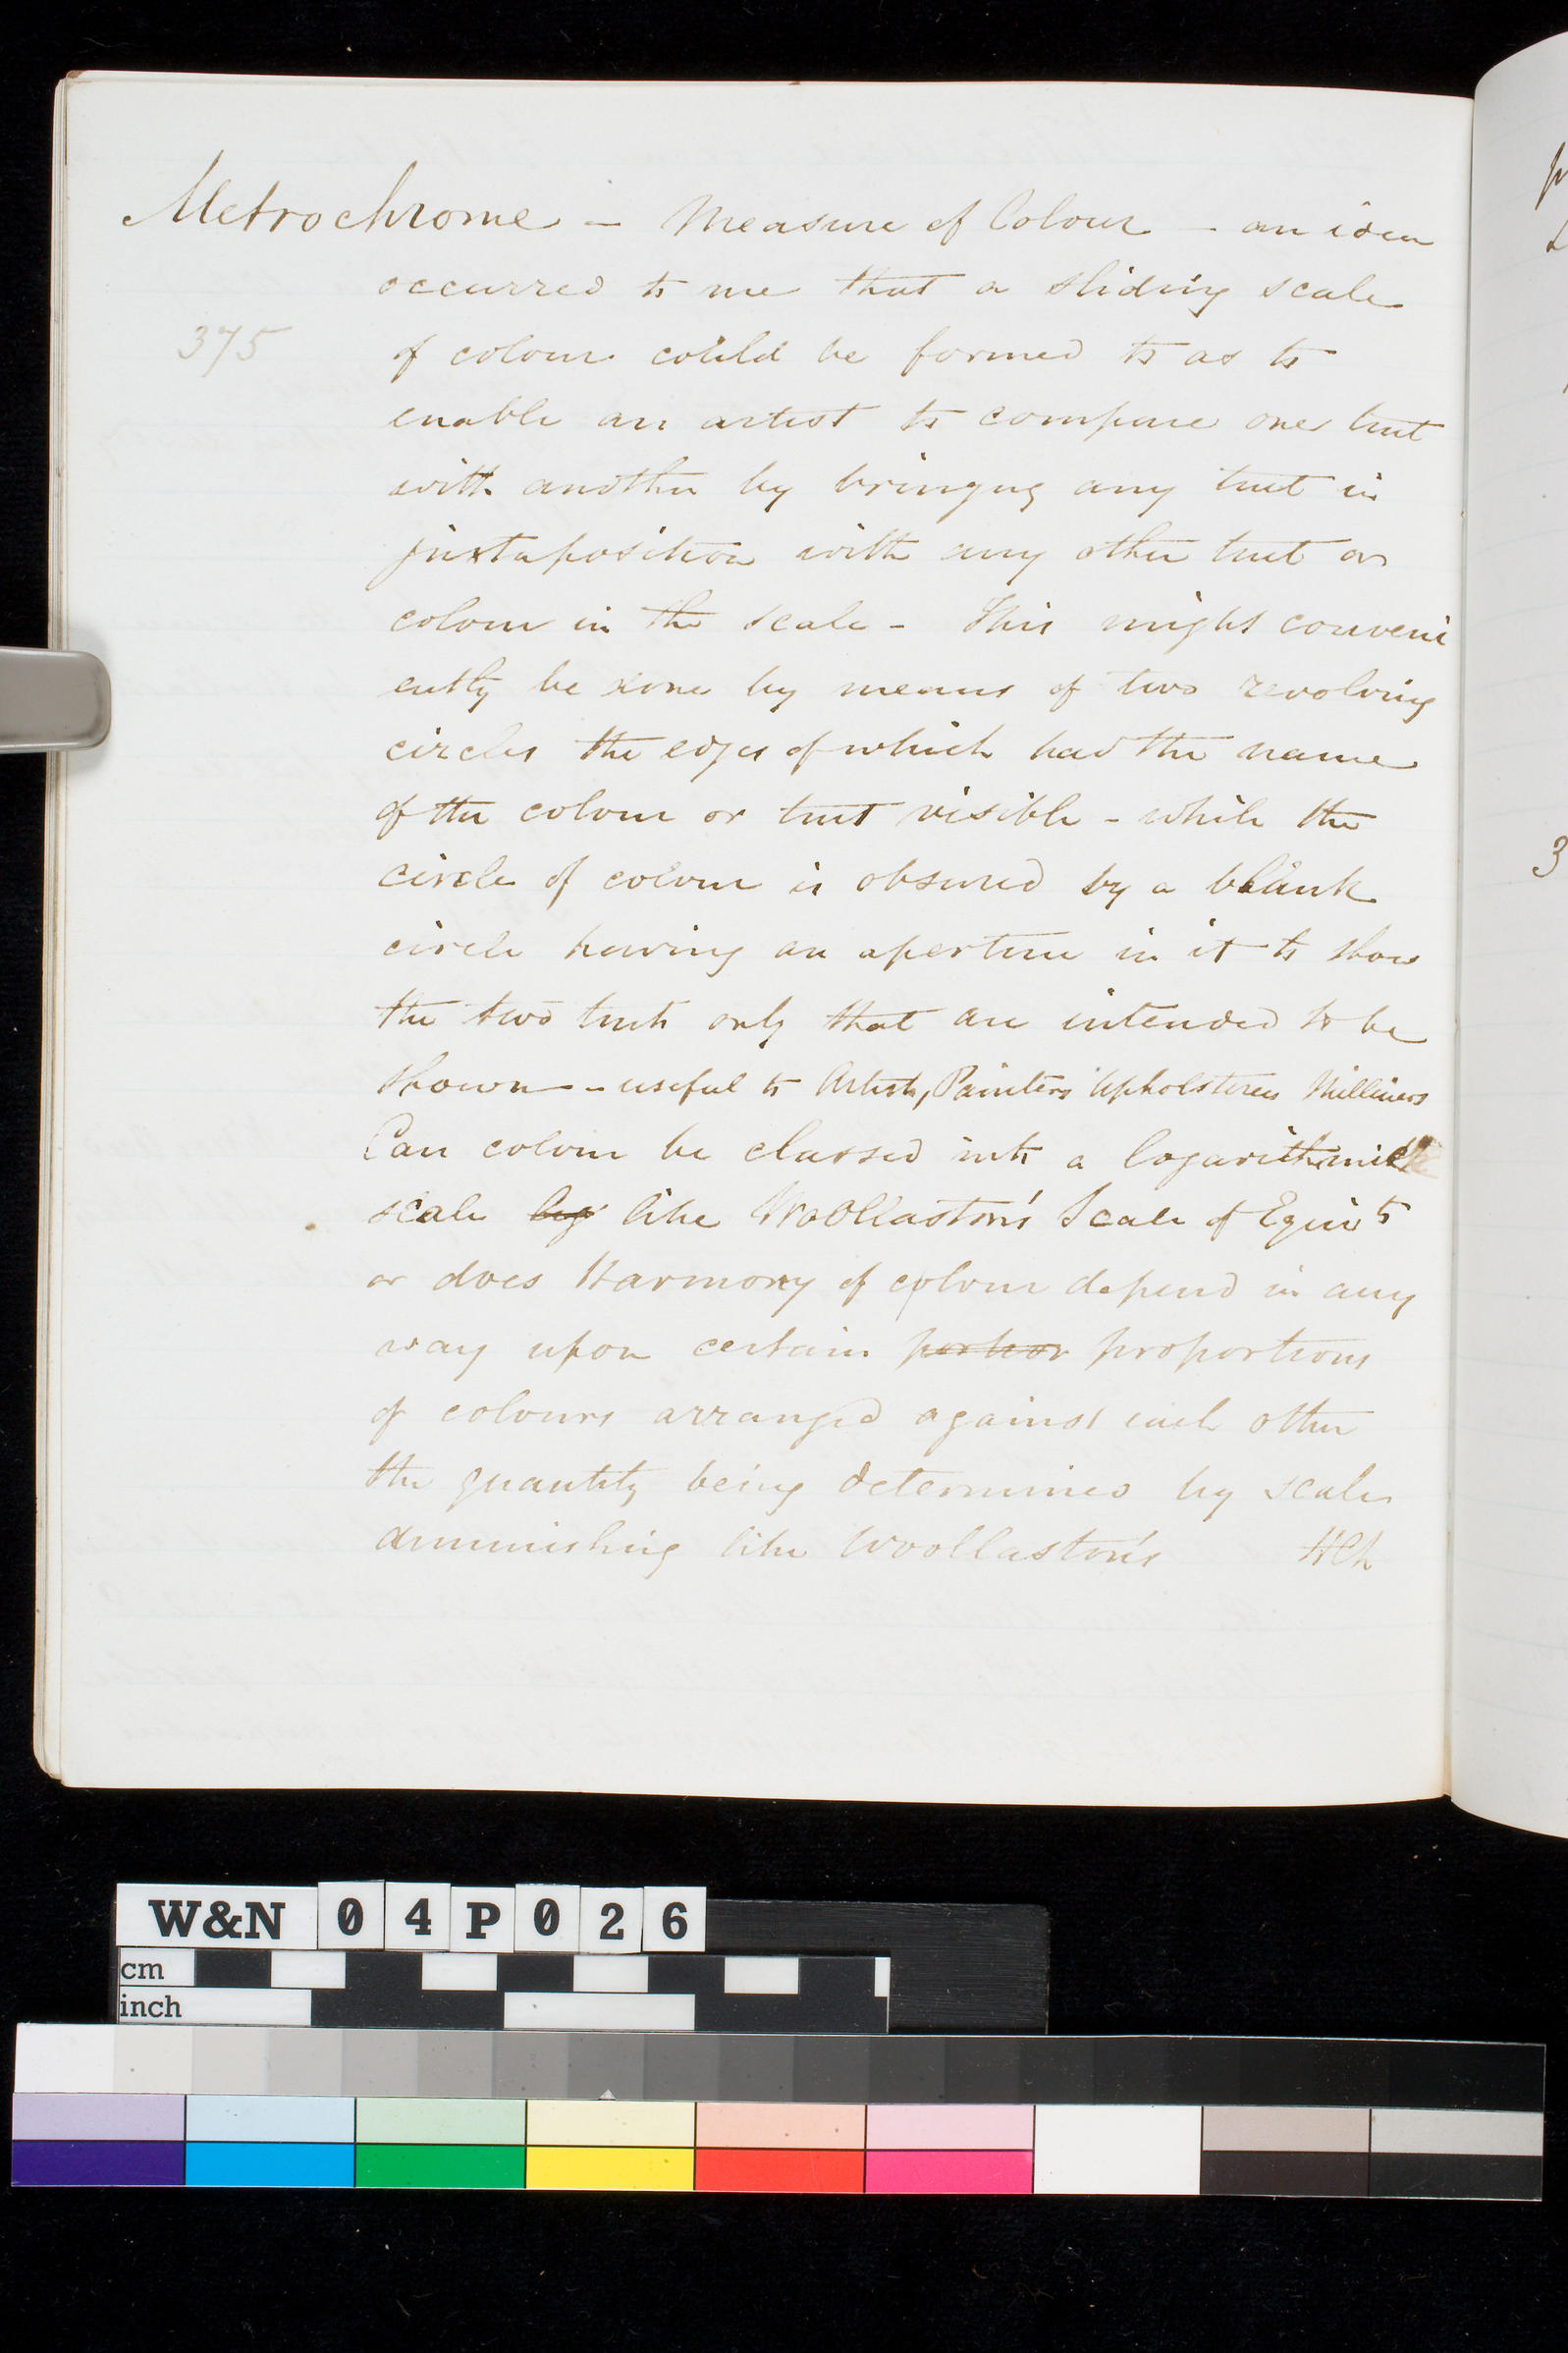 Metrochrome - Measure of Colour - an idea
occurred to me that a sliding scale
375
of colour could be formed to as to
enable an artist to compare one tint
with another by bringing any tint in
juxtaposition with any other tint or
colour in the scale - This might conveni
ently be done by means of two revolving
circles the edges of which had the name
of the colour or tint visible - while the
circle of colour is obsured by a blank
circle having an aperture in it to show
the two tints only that are intended to be
shown - useful to Artists, Painters Upholsterers Milliners
Can colour be classed into a logarithmic
scale log like Woollaston's Scale of Equivts
or does Harmony of colour depend in any
way upon certain portion proportions
of colours arranged against each other
the quantity being determined by scales
diminishing like Woollaston's HCh
3
W&N 04P026
cm
inch